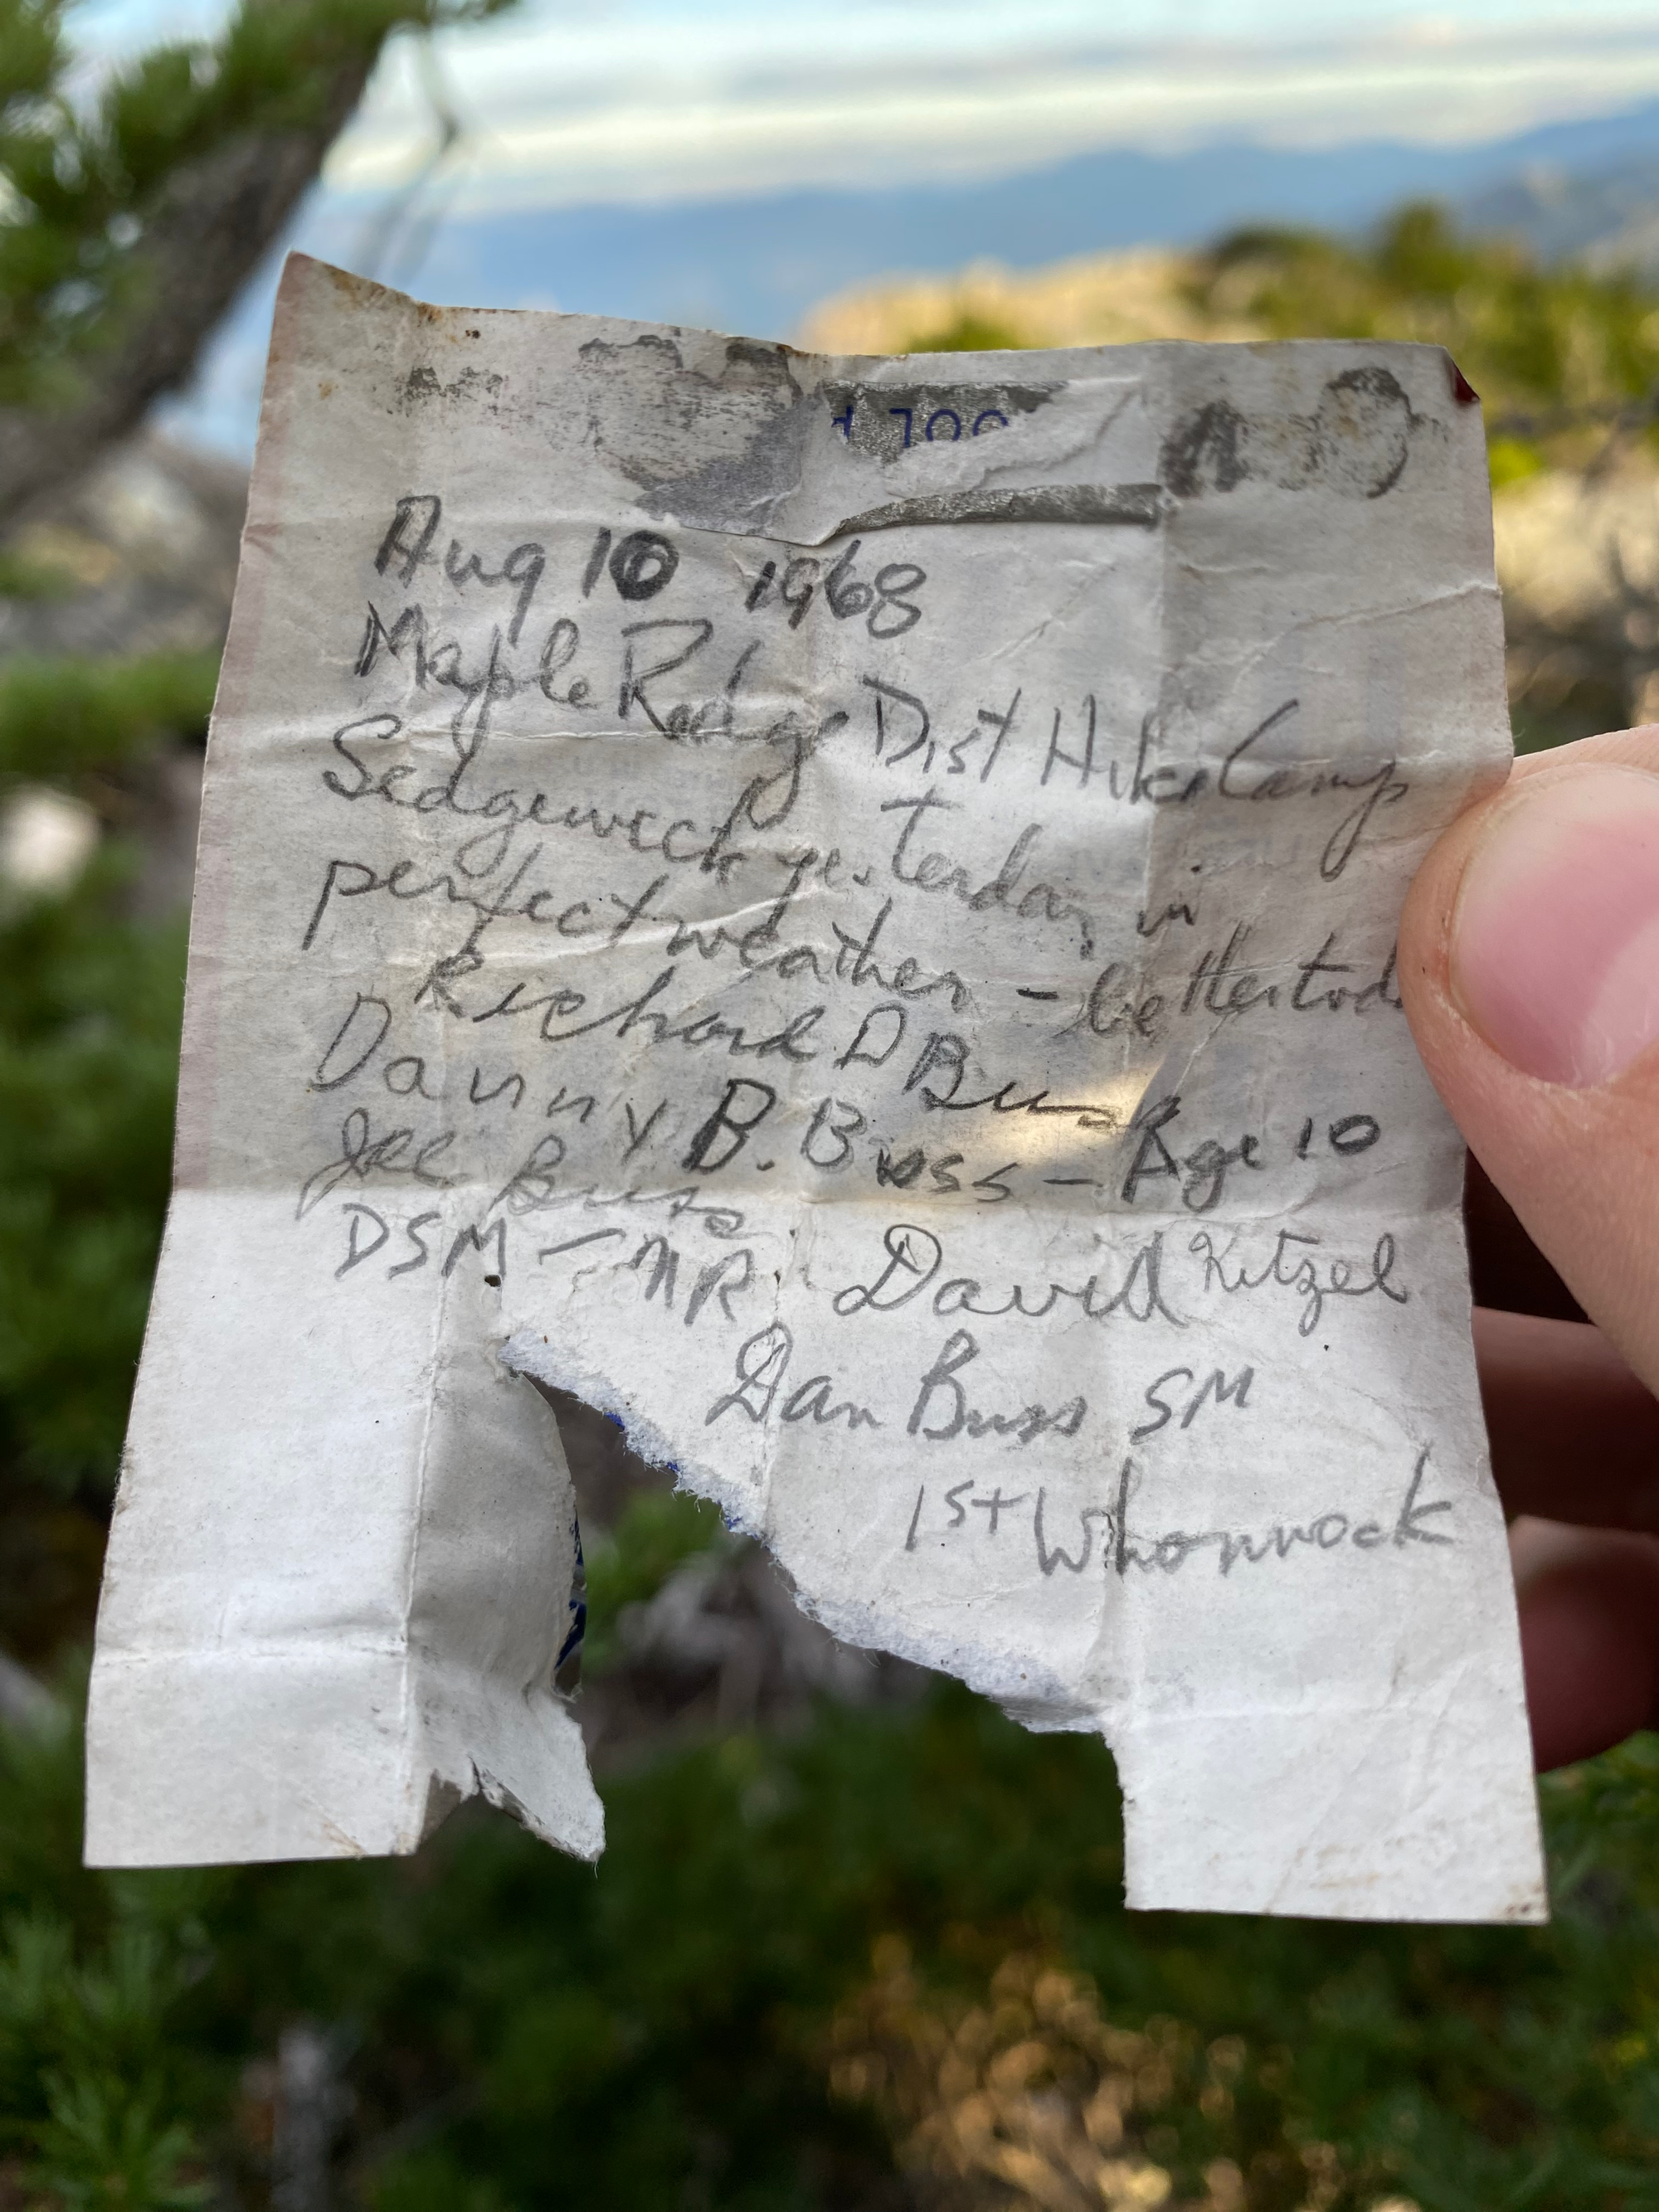 Aug 10 1968
Maple Ridge Dist Hike Camp
Sedgewick yesterday in
perfect weather - better
Richard D Buss
Danny B. Buss - Age 10
Joe Buss
DSM - MR David Kitzel
Dan Buss SM
1st Whonnock